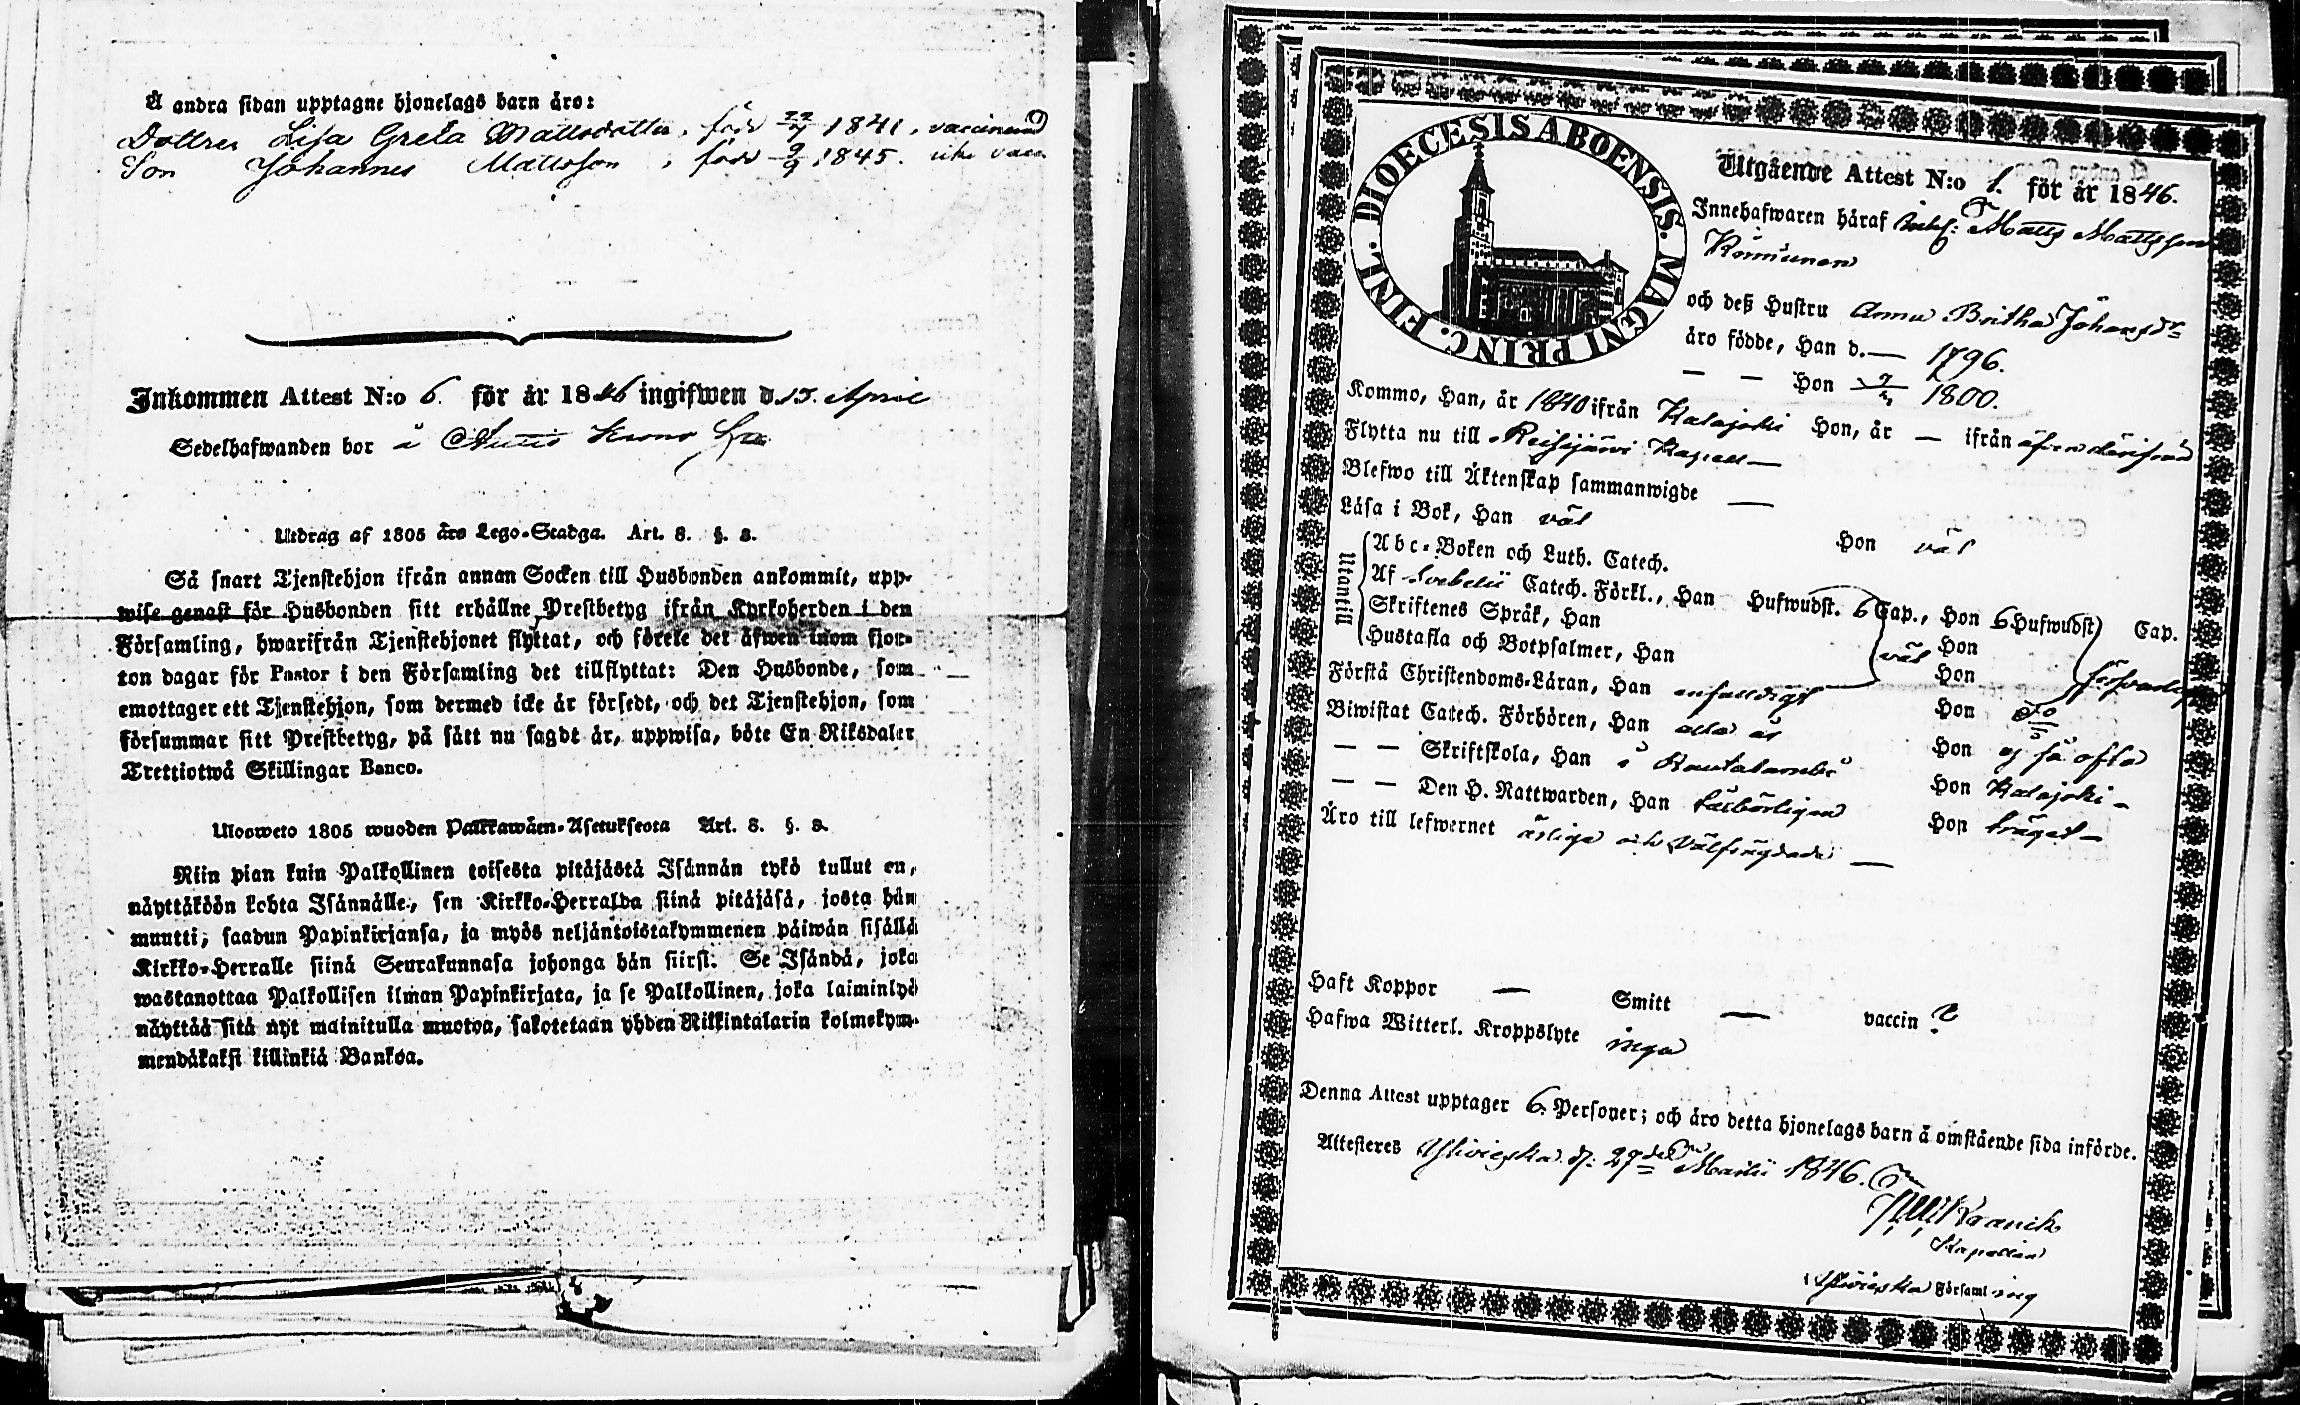 Å andra sidan upptagne hjonelags barn äro:
Dottren Lisa Greta Mattsdotter, född 22/4 1841, vaccinerad
Son Johannes Mattsson, född 9/9 1845. icke vacc
Inkommen Attest N:o 6. för år 1846 ingifwen d. 15. April
Sedelhafwanden bor å
Utdrag af 1805 års Lego-Stadga. Art. 8. §. 8.
Så snart Tjenstehjon ifrån annan Socken till Husbonden ankommit, upp-
wise genast för Husbonden sitt erhållne Prestbetyg ifrån Kyrkoherden i den
Församling, hwarifrån Tjenstehjonet flyttat, och förete det äfwen inom fjor-
ton dagar för Pastor i den Församling det tillflyttat: Den Husbonde, som
emottager ett Tjenstehjon, som dermed icke är försedt, och det Tjenstehjon, som
försummar sitt Prestbetyg, på sätt nu sagdt är, uppwisa, böte En Riksdaler
Trettiotwå Skillingar Banco.
Ulosweto 1805 wuoden Palkkawäen-Asetuksesta Art. 8. §. 8.
Niin pian kuin Palkollinen toisesta pitäjästä Isännän tykö tullut on,
näyttäköön kohta Isännälle, sen Kirkko-Herralda siinä pitäjäsä, josta hän
muutti, saadun Papinkirjansa, ja myös neljäntoistakymmenen päiwän sisällä
Kirkko-Herralle siinä Seurakunnasa johonga hän siirsi. Se Isändä, joka
wastanottaa Palkollisen ilman Papinkirjata, ja se Palkollinen, joka laiminlyö
näyttää sitä nyt mainitulla muotoa, sakotetaan yhden Riikintalarin kolmekym-
mendäkaksi killinkiä Bankoa.
DIOECESIS ABOENSIS. MAGNI PRINC. FINL.
Utgående Attest N:o 1. för år 1846.
Innehafwaren häraf Inhs: Matts Mattsson
Kinnunen
och deß Hustru Anna Britha Johansdr
äro födde, Han d. — 1796.
— — Hon 1800.
Kommo, Han, år 1840 ifrån Kalajoki Hon, år — ifrån äfven därifrån
Flytta nu till Reisjärvi Kapell —
Blefwo till Äktenskap sammanwigde —
Läsa i Bok, Han väl Hon väl
Utantill
Abc-Boken och Luth. Catech.
Af Svebelii Catech. Förkl., Han Hufwudst. 6 Cap., Hon 6 Hufwudst Cap.
Skriftenes Språk, Han Hon
Hustafla och Botpsalmer, Han väl Hon
Förstå Christendoms-Läran, Han enfaldigt Hon Do
Biwistat Catech. Förhören, Han alla år Hon ej så ofta
— — Skriftskola, Han i Rautalambi Hon Kalajoki —
— — Den H. Nattwarden, Han tillbörligen Hon trägit —
Äro till lefwernet ärliga och välfrägdade —
Haft Koppor — Smitt — vaccin ?
Hafwa Witterl. Kroppslyte inga
Denna Attest upptager 6. Personer; och äro detta hjonelags barn å omstående sida införde.
Attesteres Ylivieska d: 27de Martii 1846.
Kapellan
i Ylivieska Församling